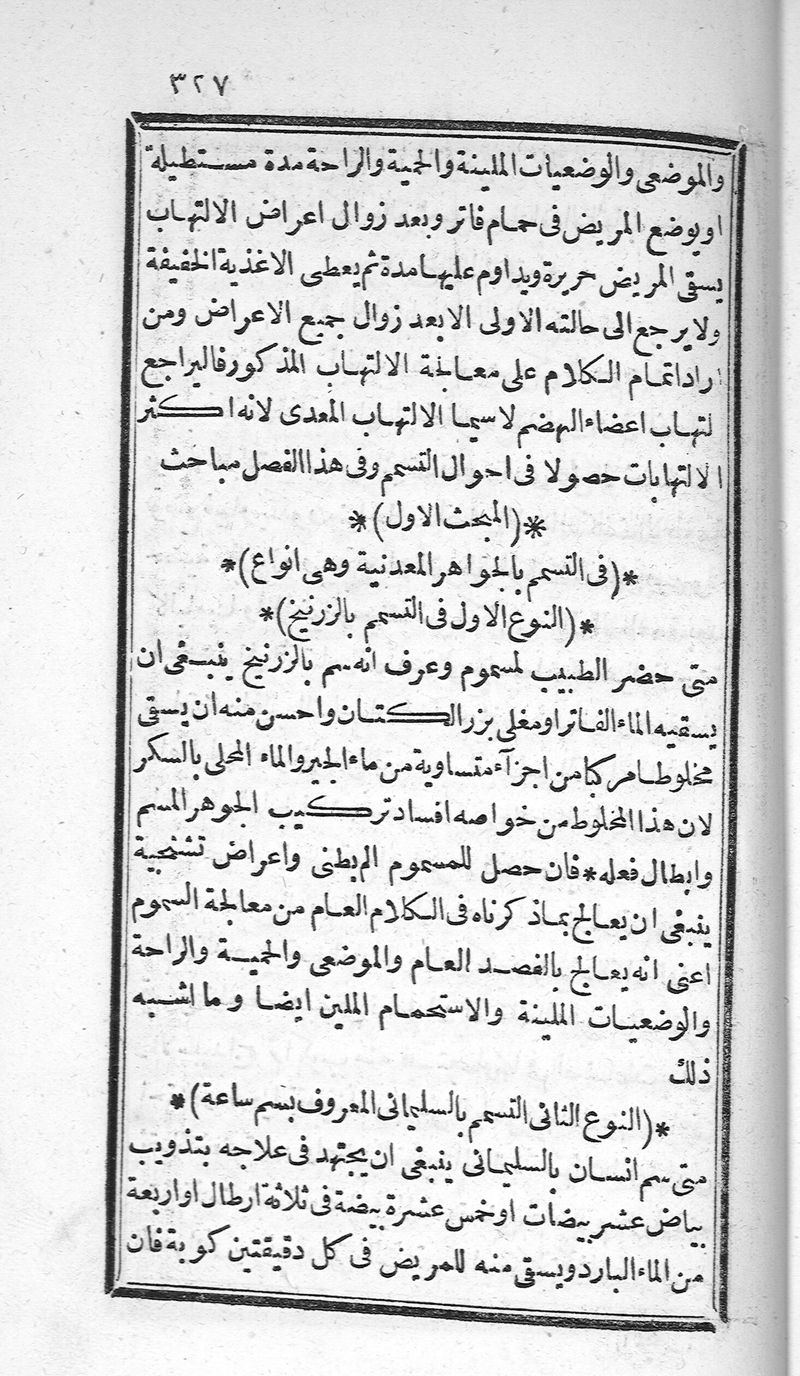 ٣٢٧
والموضعى والوضعيات الملينة والحمية والراحة مدة مستطيلة
او يوضع المريض فى حمام فاتر وبعد زوال اعراض الالتهاب
يسقى المريض حريرة ويداوم عليها مدة ثم يعطى الاغذية الخفيفة
ولا يرجع الى حالته الاولى الا بعد زوال جميع الاعراض ومن
اراد اتمام الكلام على معالجة الالتهاب المذكور فاليراجع
لتهاب اعضاء الهضم لاسيما الالتهاب المعدى لانه اكثر
الالتهابات حصولا فى احوال التسمم وفى هذا الفصل مباحث
*(المبحث الاول)*
*(فى التسمم بالجواهر المعدنية وهى انواع)*
*(النوع الاول فى التسمم بالزرنيخ)*
متى حضر الطبيب لمسموم وعرف انه سم بالزرنيخ ينبغى ان
يسقيه الماء الفاتر او مغلى بزر الكتان واحسن منه ان يسقى
مخلوطا مركبا من اجزآء متساوية من ماء الجير والماء المحلى بالسكر
لان هذا المخلوط من خواصه افساد تركيب الجوهر المسم
وابطال فعله * فان حصل للمسموم الم بطنى واعراض تشنجية
ينبغى ان يعالج بماذكرناه فى الكلام العام من معالجة السموم
اعنى انه يعالج بالفصد العام والموضعى والحمية والراحة
والوضعيات الملينة والاستحمام الملين ايضا وما اشبه
ذلك
*(النوع الثانى التسمم بالسليمانى المعروف بسم ساعة)*
متى سم انسان بالسليمانى ينبغى ان يجتهد فى علاجه بتذويب
بياض عشر بيضات او خمس عشرة بيضة فى ثلاثة ارطال او اربعة
من الماء البارد ويسقى منه للمريض فى كل دقيقتين كوبة فان